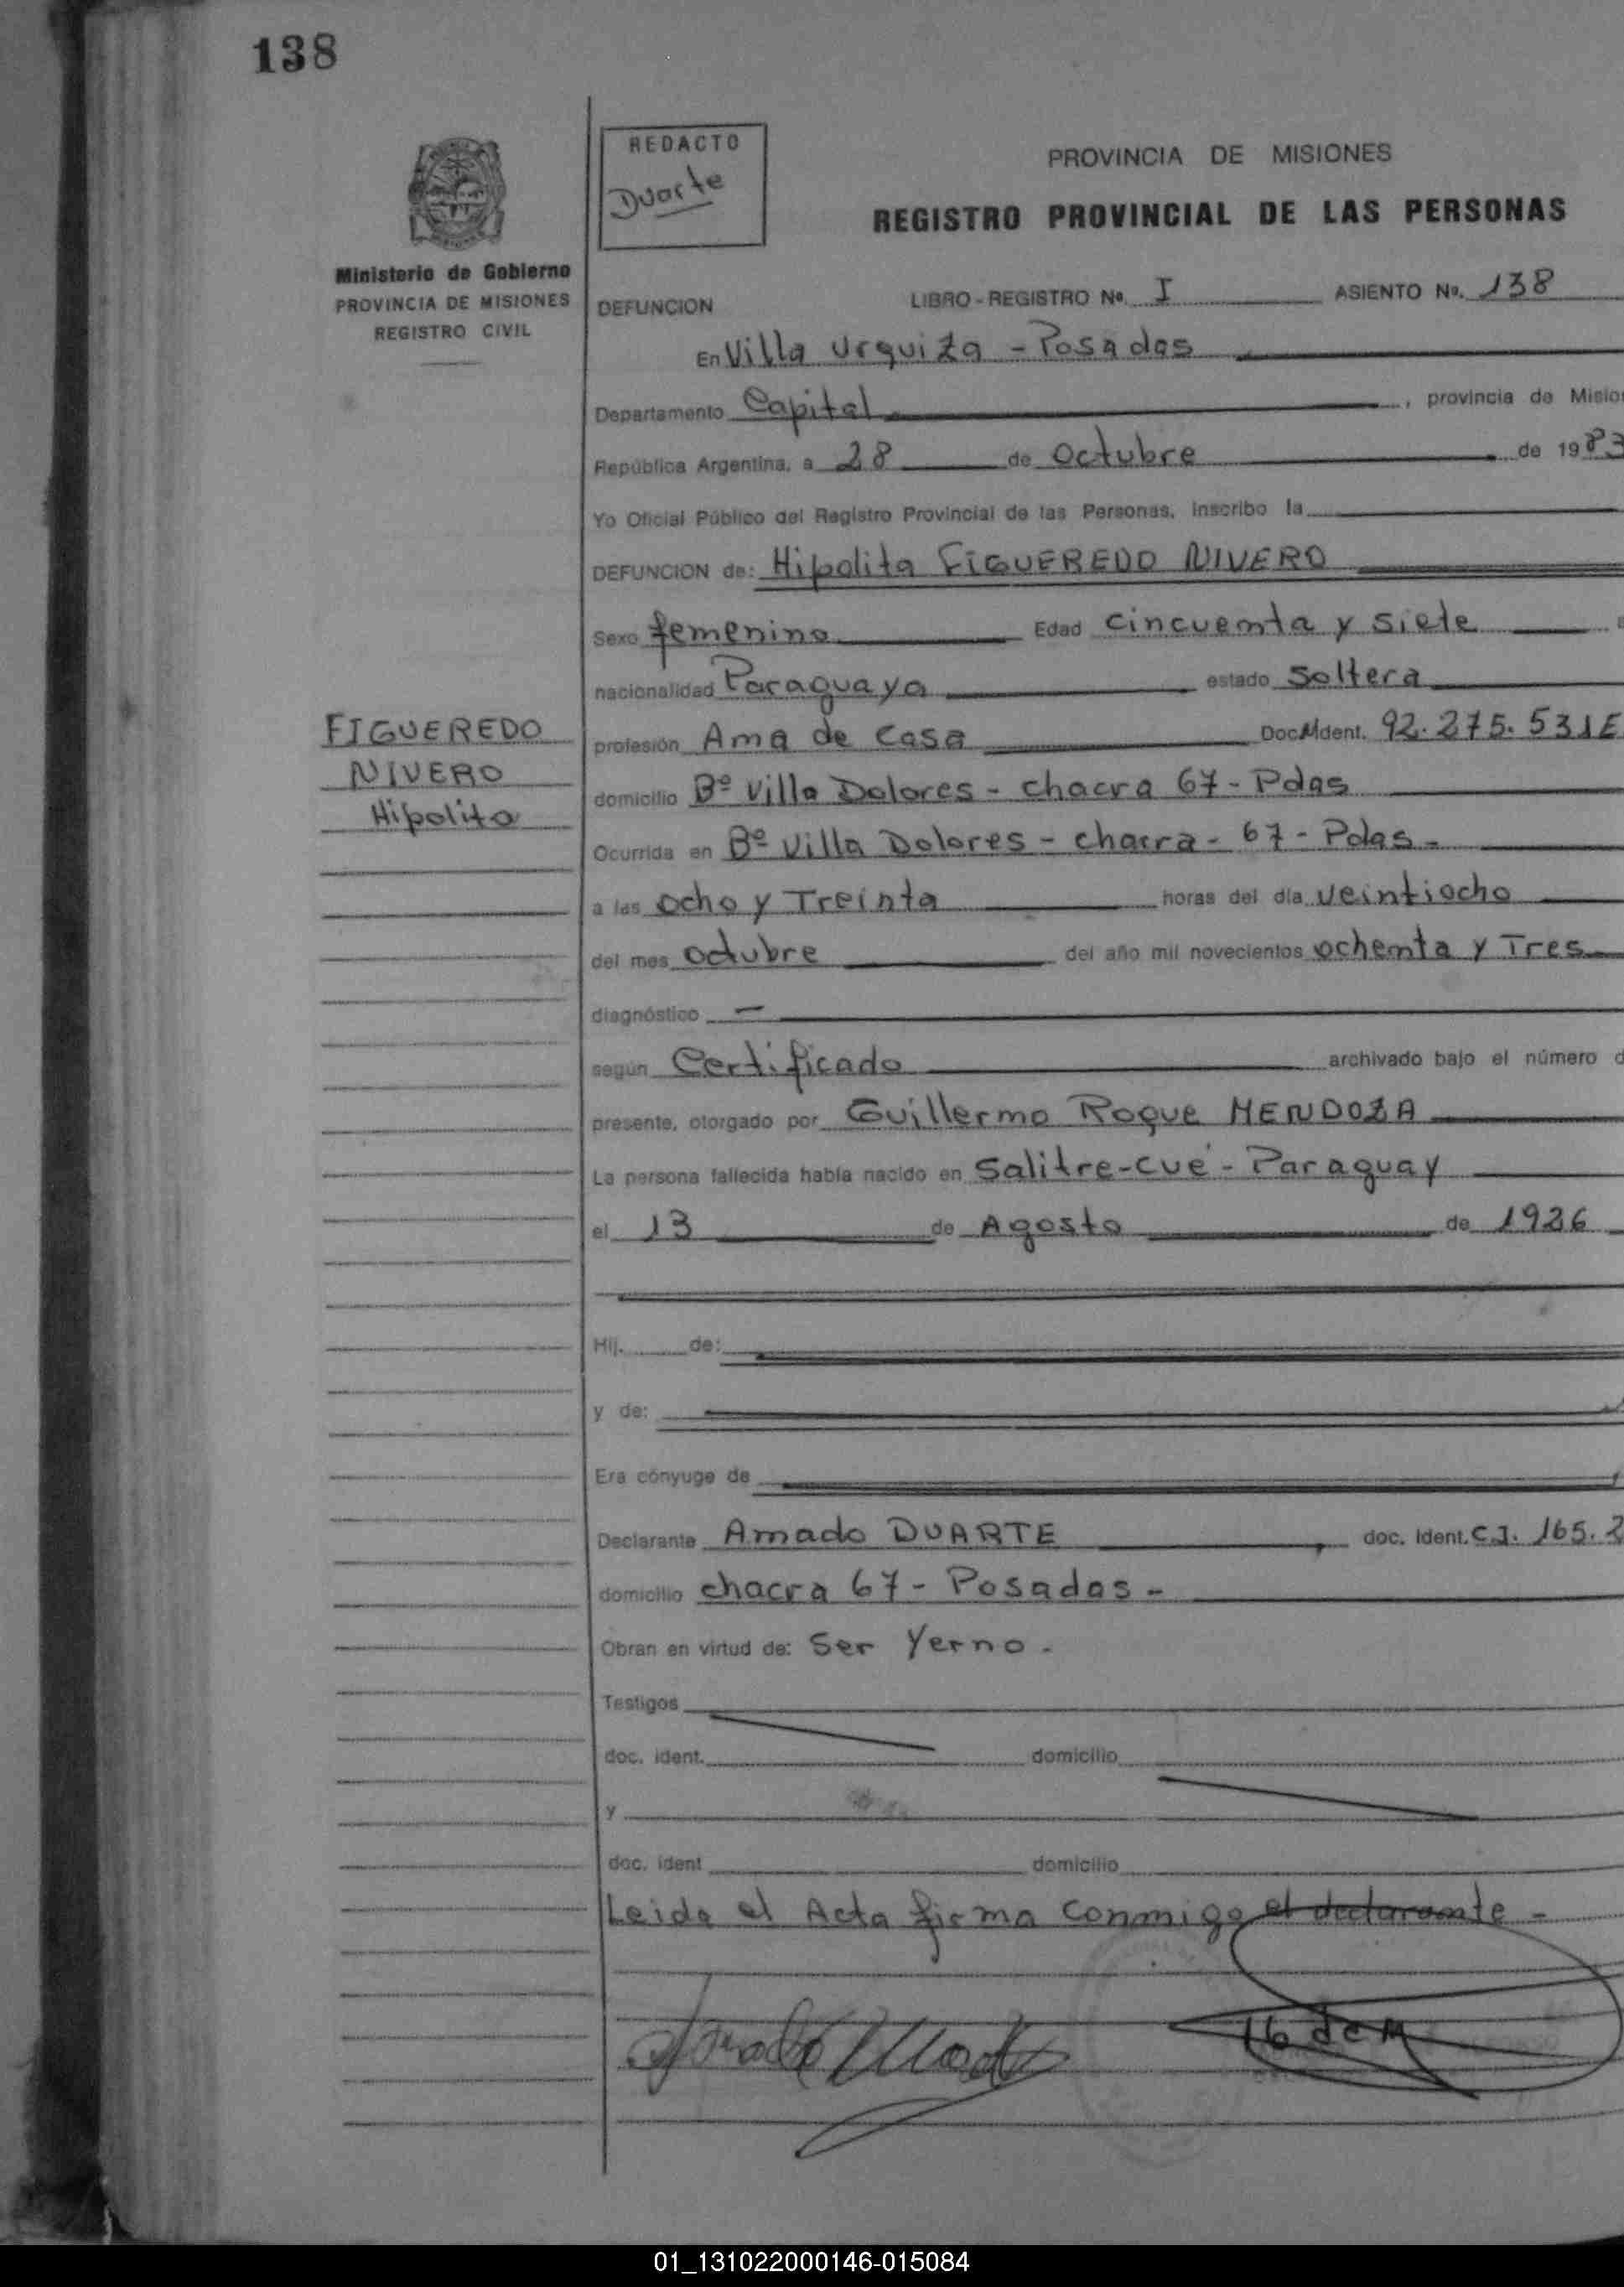 138
Ministerio de Gobierno
PROVINCIA DE MISIONES
REGISTRO CIVIL
REDACTO
Duarte
PROVINCIA DE MISIONES
REGISTRO PROVINCIAL DE LAS PERSONAS
DEFUNCION LIBRO - REGISTRO Nº. I ASIENTO Nº. 138
En Villa Urquiza - Posadas
Departamento Capital, provincia de Misio
República Argentina, a 28 de Octubre de 1983
Yo Oficial Público del Registro Provincial de las Personas, inscribo la
DEFUNCION de: Hipolita FIGUEREDO NIVERO
Sexo femenino Edad cincuenta y siete
nacionalidad Paraguaya estado Soltera
FIGUEREDO
NIVERO
Hipolita
profesión Ama de Casa Doc. Ident. 92.275.531E
domicilio Bº Villa Dolores - chacra 67 - Pdas
Ocurrida en Bº Villa Dolores - chacra - 67 - Pdas -
a las ocho y Treinta horas del día veintiocho
del mes octubre del año mil novecientos ochenta y Tres
diagnóstico -
según Certificado archivado bajo el número d
presente, otorgado por Guillermo Roque MENDOZA
La persona fallecida había nacido en Salitre-cué - Paraguay
el 13 de Agosto de 1926
Hij. de:
y de:
Era cónyuge de
Declarante Amado DUARTE, doc. Ident. C.I. 165.2
domicilio chacra 67 - Posadas -
Obran en virtud de: Ser Yerno.
Testigos
doc. ident. domicilio
y
doc. ident domicilio
Leida el Acta firma conmigo el declarante -
01_131022000146-015084